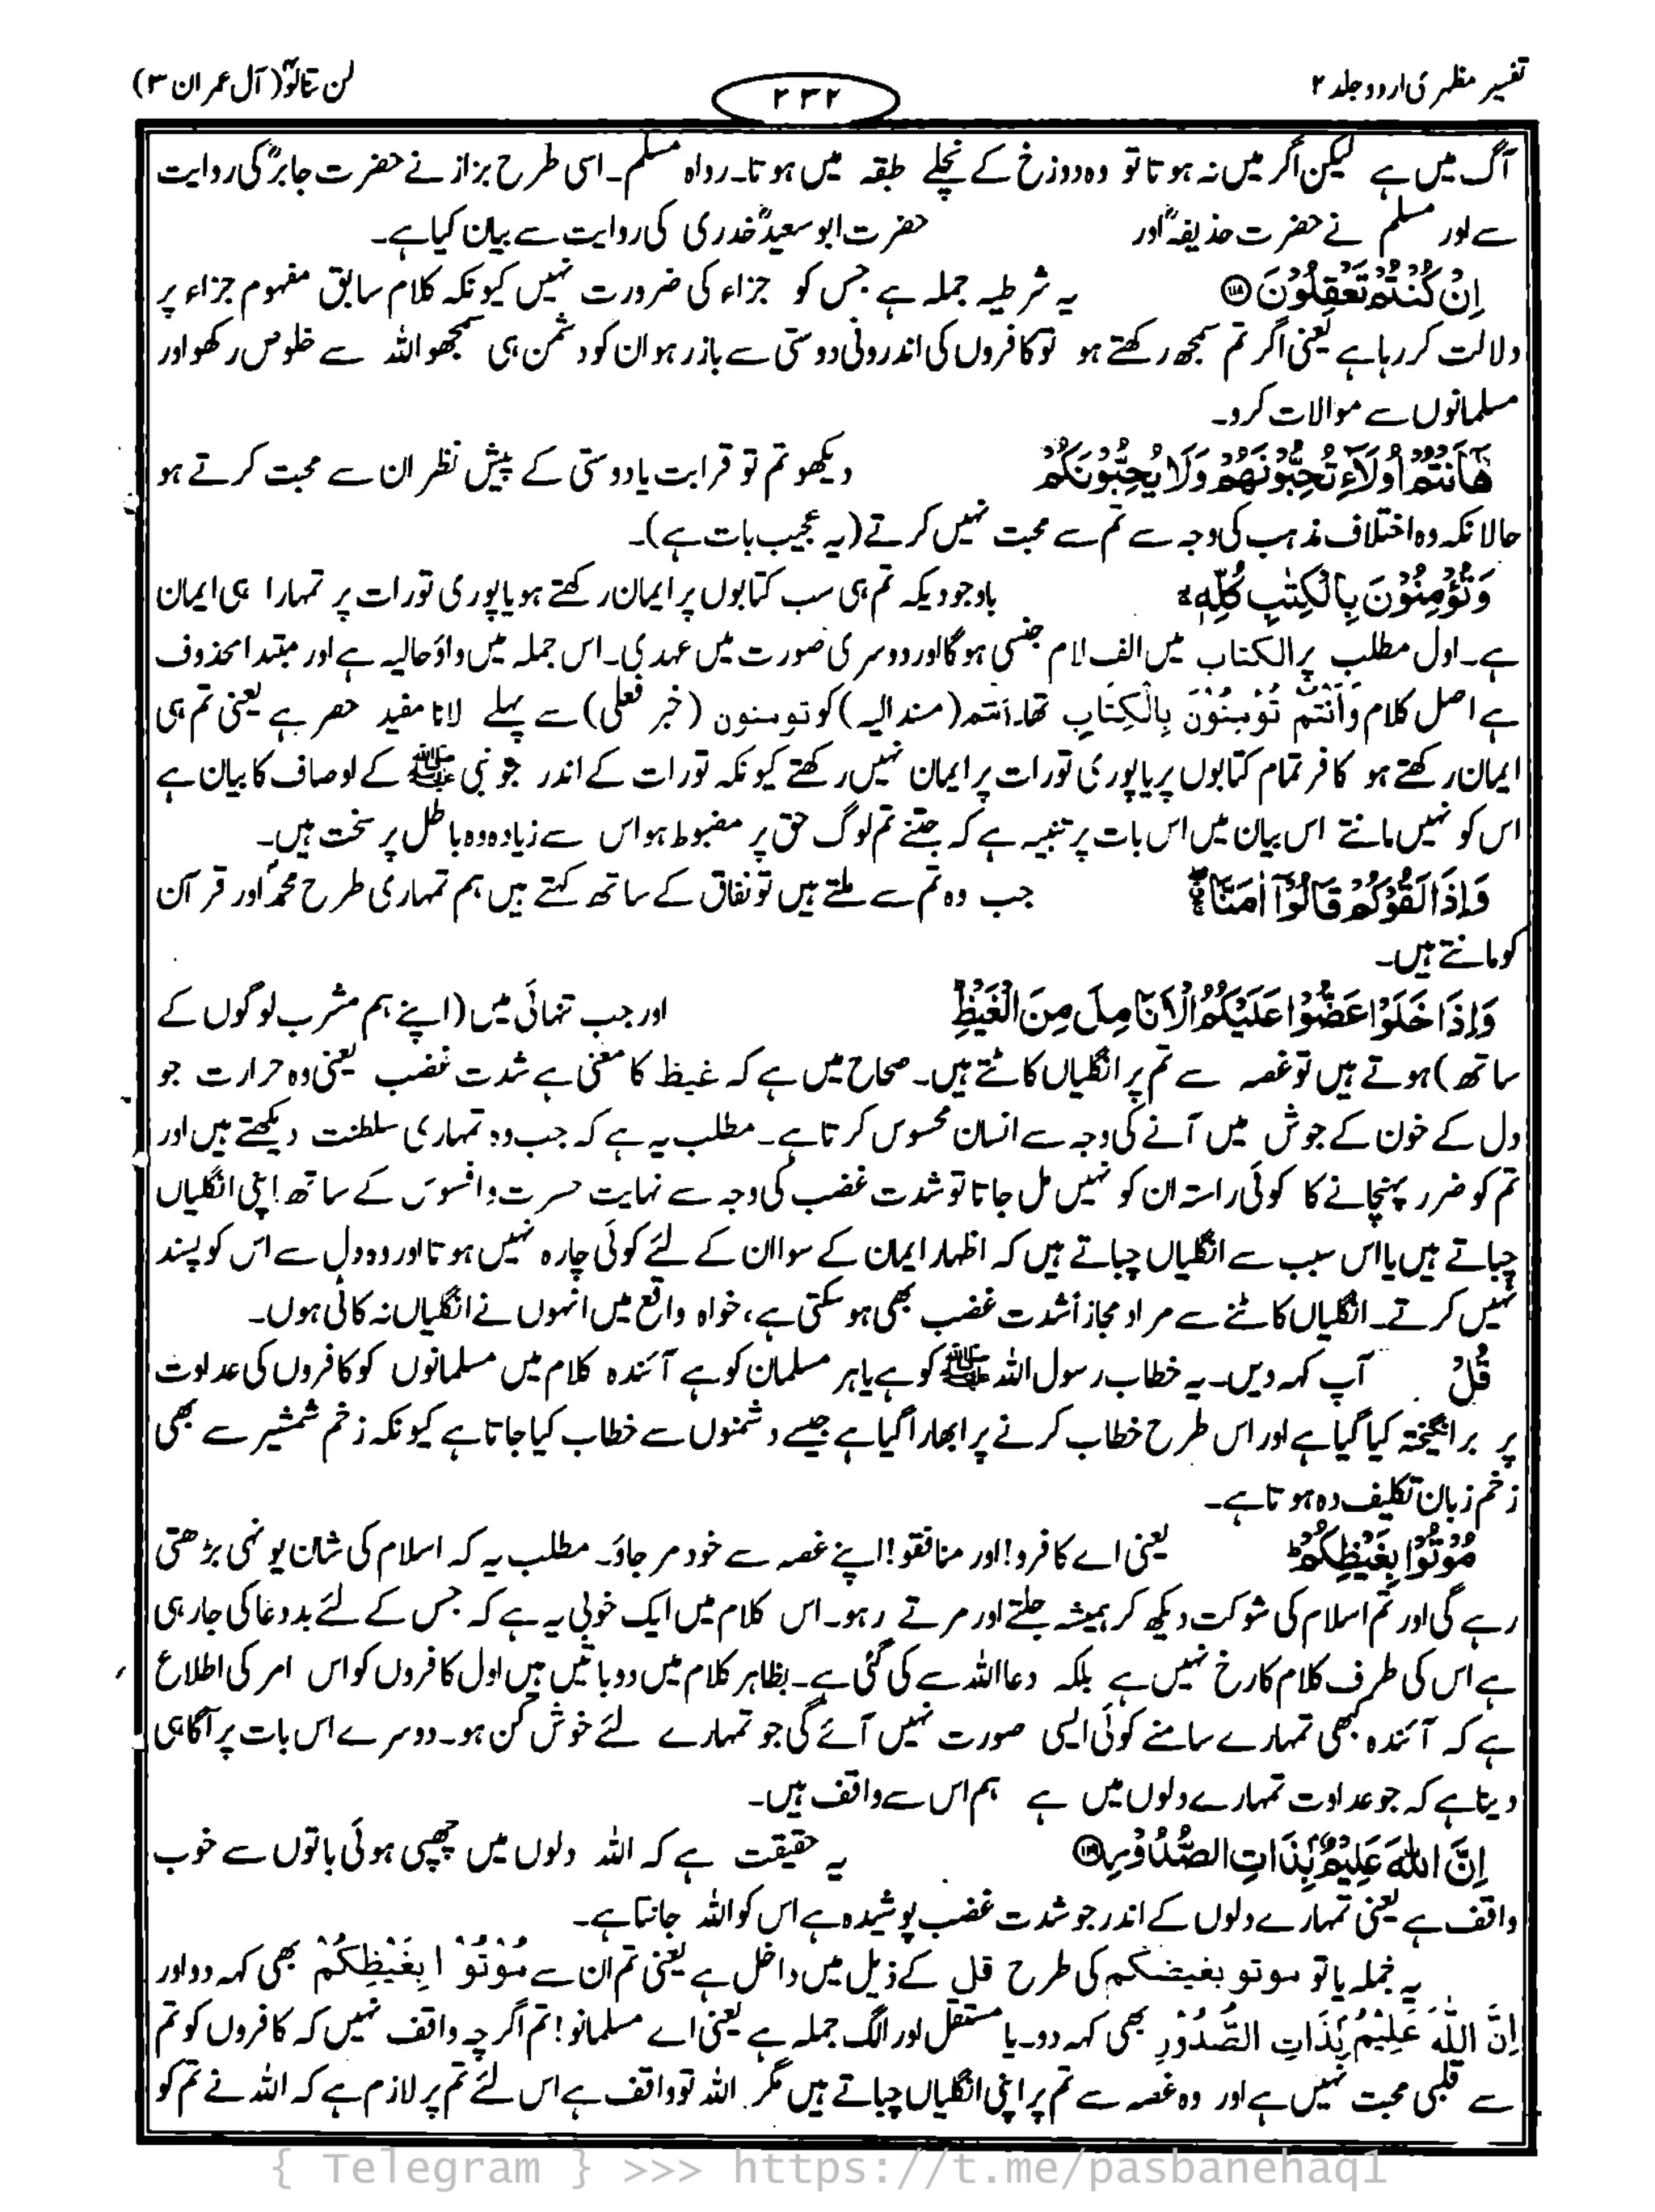 تفسیر مظہری اردو جلد ۲
۲۳۲
لن تنالوا (آل عمران ۳)
آگ میں ہے لیکن اگر میں نہ ہوتا تو وہ دوزخ کے نچلے طبقہ میں ہوتا۔ رواہ مسلم۔ اسی طرح بزاز نے حضرت جابرؓ کی روایت
سے اور مسلم نے حضرت حذیفہؓ اور حضرت ابو سعیدؓ خدری کی روایت سے بیان کیا ہے۔
اِنْ كُنْتُمْ تَعْقِلُوْنَ ﴿۱۱۸﴾ یہ شرطیہ جملہ ہے جس کو جزاء کی ضرورت نہیں کیونکہ کلام سابق مفہوم جزاء پر
دلالت کر رہا ہے یعنی اگر تم سمجھ رکھتے ہو تو کافروں کی اندرونی دوستی سے باز رہو ان کو دشمن ہی سمجھو اللہ سے خلوص رکھو اور
مسلمانوں سے موالات کرو۔
هٰۤاَنْتُمْ اُولَآءِ تُحِبُّوْنَهُمْ وَلَا يُحِبُّوْنَكُمْ دیکھو تم تو قرابت یا دوستی کے پیش نظر ان سے محبت کرتے ہو
حالانکہ وہ اختلاف مذہب کی وجہ سے تم سے محبت نہیں کرتے (یہ عجیب بات ہے)۔
وَتُؤْمِنُوْنَ بِالْكِتٰبِ كُلِّهٖ باوجودیکہ تم ہی سب کتابوں پر ایمان رکھتے ہو یا پوری تورات پر تمہارا ہی ایمان
ہے۔ اول مطلب پر الکتاب میں الف لام جنسی ہوگا اور دوسری صورت میں عہدی۔ اس جملہ میں واؤ حالیہ ہے اور مبتدا محذوف
ہے اصل کلام وَاَنْتُمْ تُوْمِنُوْنَ بِالْكِتَابِ تھا۔ انتم (مسند الیہ) کو تومنون (خبر فعلی) سے پہلے لانا مفید حصر ہے یعنی تم ہی
ایمان رکھتے ہو کافر تمام کتابوں پر یا پوری تورات پر ایمان نہیں رکھتے کیونکہ تورات کے اندر جو نبی ﷺ کے اوصاف کا بیان ہے
اس کو نہیں مانتے اس بیان میں اس بات پر تنبیہ ہے کہ جتنے تم لوگ حق پر مضبوط ہو اس سے زیادہ وہ باطل پر سخت ہیں۔
وَاِذَا لَقُوْكُمْ قَالُوْۤا اٰمَنَّا جب وہ تم سے ملتے ہیں تو نفاق کے ساتھ کہتے ہیں ہم تمہاری طرح محمدؐ اور قرآن
کو مانتے ہیں۔
وَاِذَا خَلَوْا عَضُّوْا عَلَيْكُمُ الْاَنَامِلَ مِنَ الْغَيْظِ اور جب تنہائی میں (اپنے ہم مشرب لوگوں کے
ساتھ) ہوتے ہیں تو غصہ سے تم پر انگلیاں کاٹتے ہیں۔ صحاح میں ہے کہ غیظ کا معنی ہے شدت غضب یعنی وہ حرارت جو
دل کے خون کے جوش میں آنے کی وجہ سے انسان محسوس کرتا ہے۔ مطلب یہ ہے کہ جب وہ تمہاری سلطنت دیکھتے ہیں اور
تم کو ضرر پہنچانے کا کوئی راستہ ان کو نہیں مل جاتا تو شدت غضب کی وجہ سے نہایت حسرت و افسوس کے ساتھ اپنی انگلیاں
چباتے ہیں یا اس سبب سے انگلیاں چباتے ہیں کہ اظہار ایمان کے سوا ان کے لئے کوئی چارہ نہیں ہوتا اور وہ دل سے اس کو پسند
نہیں کرتے۔ انگلیاں کاٹنے سے مراد مجازاً شدت غضب بھی ہو سکتی ہے، خواہ واقع میں انہوں نے انگلیاں نہ کاٹی ہوں۔
قُلْ آپ کہہ دیں۔ یہ خطاب رسول اللہ ﷺ کو ہے یا ہر مسلمان کو ہے آئندہ کلام میں مسلمانوں کو کافروں کی عداوت
پر برانگیختہ کیا گیا ہے اور اس طرح خطاب کرنے پر ابھارا گیا ہے جیسے دشمنوں سے خطاب کیا جاتا ہے کیونکہ زخم شمشیر سے بھی
زخم زبان تکلیف دہ ہوتا ہے۔
مُوْتُوْا بِغَيْظِكُمْ یعنی اے کافرو! اور منافقو! اپنے غصہ سے خود مر جاؤ۔ مطلب یہ کہ اسلام کی شان یونہی بڑھتی
رہے گی اور تم اسلام کی شوکت دیکھ کر ہمیشہ جلتے اور مرتے رہو۔ اس کلام میں ایک خوبی یہ ہے کہ جس کے لئے بد دعا کی جا رہی
ہے اس کی طرف کلام کا رخ نہیں ہے بلکہ دعا اللہ سے کی گئی ہے۔ بظاہر کلام میں دو باتیں ہیں اول کافروں کو اس امر کی اطلاع
ہے کہ آئندہ کبھی تمہارے سامنے کوئی ایسی صورت نہیں آئے گی جو تمہارے لئے خوش کن ہو۔ دوسرے اس بات پر آگاہی
دینا ہے کہ جو عداوت تمہارے دلوں میں ہے ہم اس سے واقف ہیں۔
اِنَّ اللّٰهَ عَلِيْمٌۢ بِذَاتِ الصُّدُوْرِ ﴿۱۱۹﴾ یہ حقیقت ہے کہ اللہ دلوں میں چھپی ہوئی باتوں سے خوب
واقف ہے یعنی تمہارے دلوں کے اندر جو شدت غضب پوشیدہ ہے اس کو اللہ جانتا ہے۔
یہ جملہ یا تو موتو بغیضکم کی طرح قل کے ذیل میں داخل ہے یعنی تم ان سے مُوْتُوْا بِغَيْظِكُمْ بھی کہہ دو اور
اِنَّ اللّٰهَ عَلِيْمٌ بِذَاتِ الصُّدُوْرِ بھی کہہ دو۔ یا مستقل اور الگ جملہ ہے یعنی اے مسلمانو! تم اگرچہ واقف نہیں کہ کافروں کو تم
سے قلبی محبت نہیں ہے اور وہ غصہ سے تم پر اپنی انگلیاں چباتے ہیں مگر اللہ تو واقف ہے اس لئے تم پر لازم ہے کہ اللہ نے تم کو
{ Telegram } >>> https://t.me/pasbanehaq1